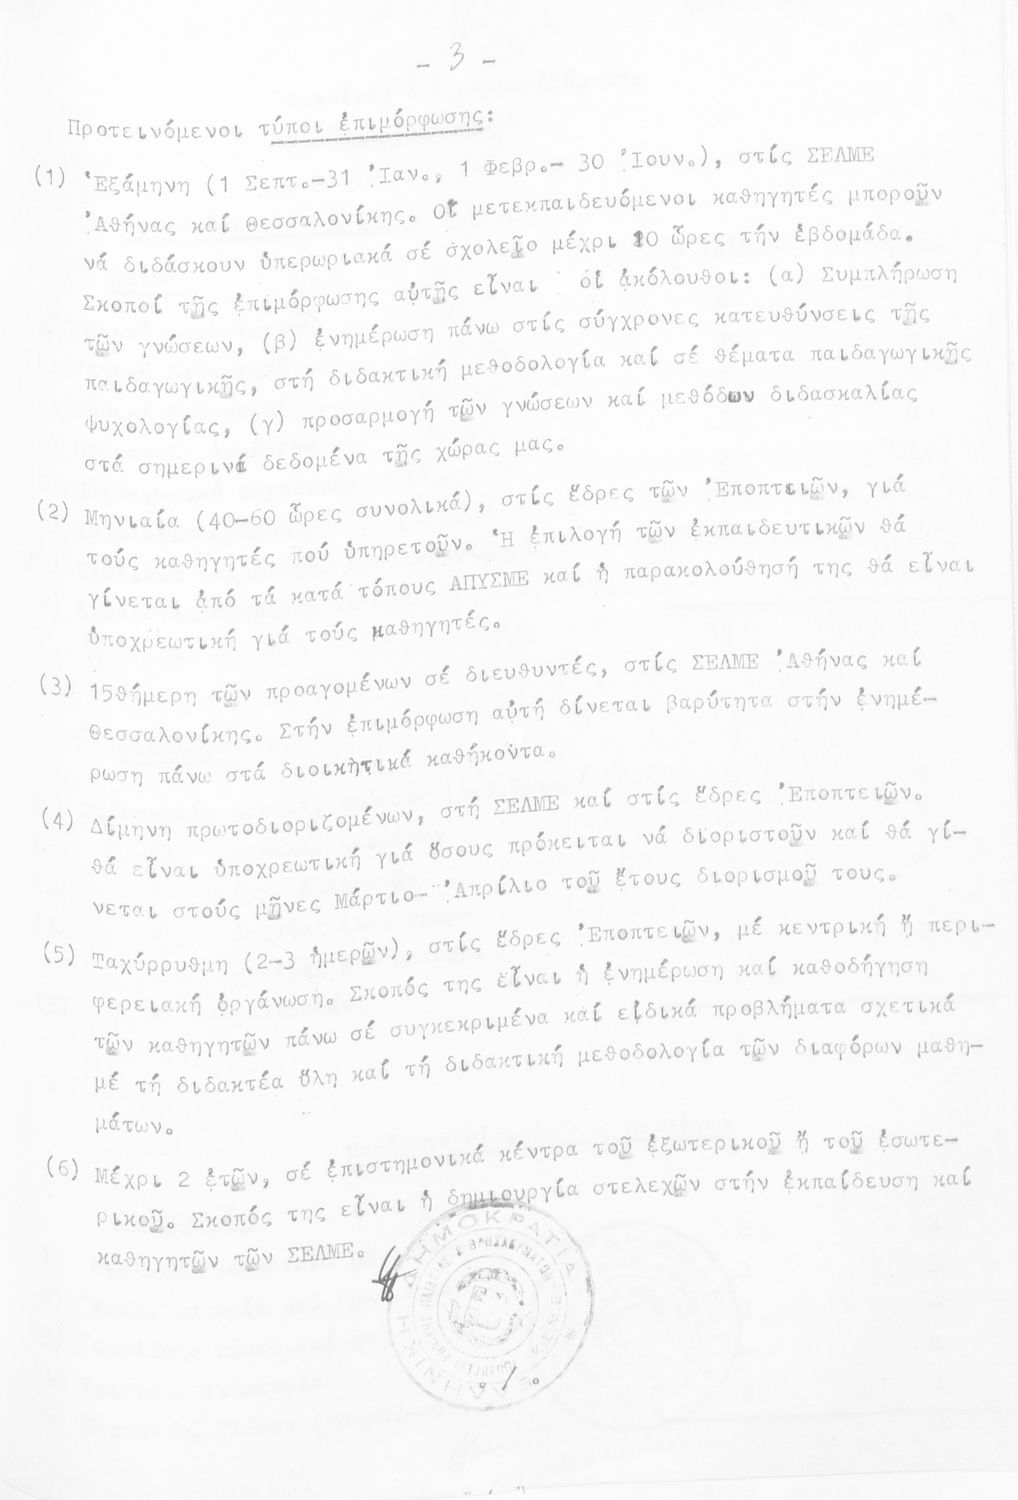 - 3 -
Προτεινόμενοι τύποι ἐπιμόρφωσης:
(1) Ἑξάμηνη (1 Σεπτ.-31 Ἰαν., 1 Φεβρ.- 30 Ἰουν.), στίς ΣΕΛΜΕ
Ἀθήνας καί Θεσσαλονίκης. Οἱ μετεκπαιδευόμενοι καθηγητές μποροῦν
νά διδάσκουν ὑπερωριακά σέ σχολεῖο μέχρι 10 ὧρες τήν ἑβδομάδα.
Σκοποί τῆς ἐπιμόρφωσης αὐτῆς εἶναι οἱ ἀκόλουθοι: (α) Συμπλήρωση
τῶν γνώσεων, (β) ἐνημέρωση πάνω στίς σύγχρονες κατευθύνσεις τῆς
παιδαγωγικῆς, στή διδακτική μεθοδολογία καί σέ θέματα παιδαγωγικῆς
ψυχολογίας, (γ) προσαρμογή τῶν γνώσεων καί μεθόδων διδασκαλίας
στά σημερινά δεδομένα τῆς χώρας μας.
(2) Μηνιαία (40-60 ὧρες συνολικά), στίς ἕδρες τῶν Ἐποπτειῶν, γιά
τούς καθηγητές πού ὑπηρετοῦν. Ἡ ἐπιλογή τῶν ἐκπαιδευτικῶν θά
γίνεται ἀπό τά κατά τόπους ΑΠΥΣΜΕ καί ἡ παρακολούθησή της θά εἶναι
ὑποχρεωτική γιά τούς καθηγητές.
(3) 15θήμερη τῶν προαγομένων σέ διευθυντές, στίς ΣΕΛΜΕ Ἀθήνας καί
Θεσσαλονίκης. Στήν ἐπιμόρφωση αὐτή δίνεται βαρύτητα στήν ἐνημέ-
ρωση πάνω στά διοικητικά καθήκοντα.
(4) Δίμηνη πρωτοδιοριζομένων, στή ΣΕΛΜΕ καί στίς ἕδρες Ἐποπτειῶν.
θά εἶναι ὑποχρεωτική γιά ὅσους πρόκειται νά διοριστοῦν καί θά γί-
νεται στούς μῆνες Μάρτιο- Ἀπρίλιο τοῦ ἔτους διορισμοῦ τους.
(5) Ταχύρρυθμη (2-3 ἡμερῶν), στίς ἕδρες Ἐποπτειῶν, μέ κεντρική ἤ περι-
φερειακή ὀργάνωση. Σκοπός της εἶναι ἡ ἐνημέρωση καί καθοδήγηση
τῶν καθηγητῶν πάνω σέ συγκεκριμένα καί εἰδικά προβλήματα σχετικά
μέ τή διδακτέα ὕλη καί τή διδακτική μεθοδολογία τῶν διαφόρων μαθη-
μάτων.
(6) Μέχρι 2 ἐτῶν, σέ ἐπιστημονικά κέντρα τοῦ ἐξωτερικοῦ ἤ τοῦ ἐσωτε-
ρικοῦ. Σκοπός της εἶναι ἡ δημιουργία στελεχῶν στήν ἐκπαίδευση καί
καθηγητῶν τῶν ΣΕΛΜΕ.
ΕΛΛΗΝΙΚΗ ΔΗΜΟΚΡΑΤΙΑ
Κ.Ε.Μ.Ε.
./.